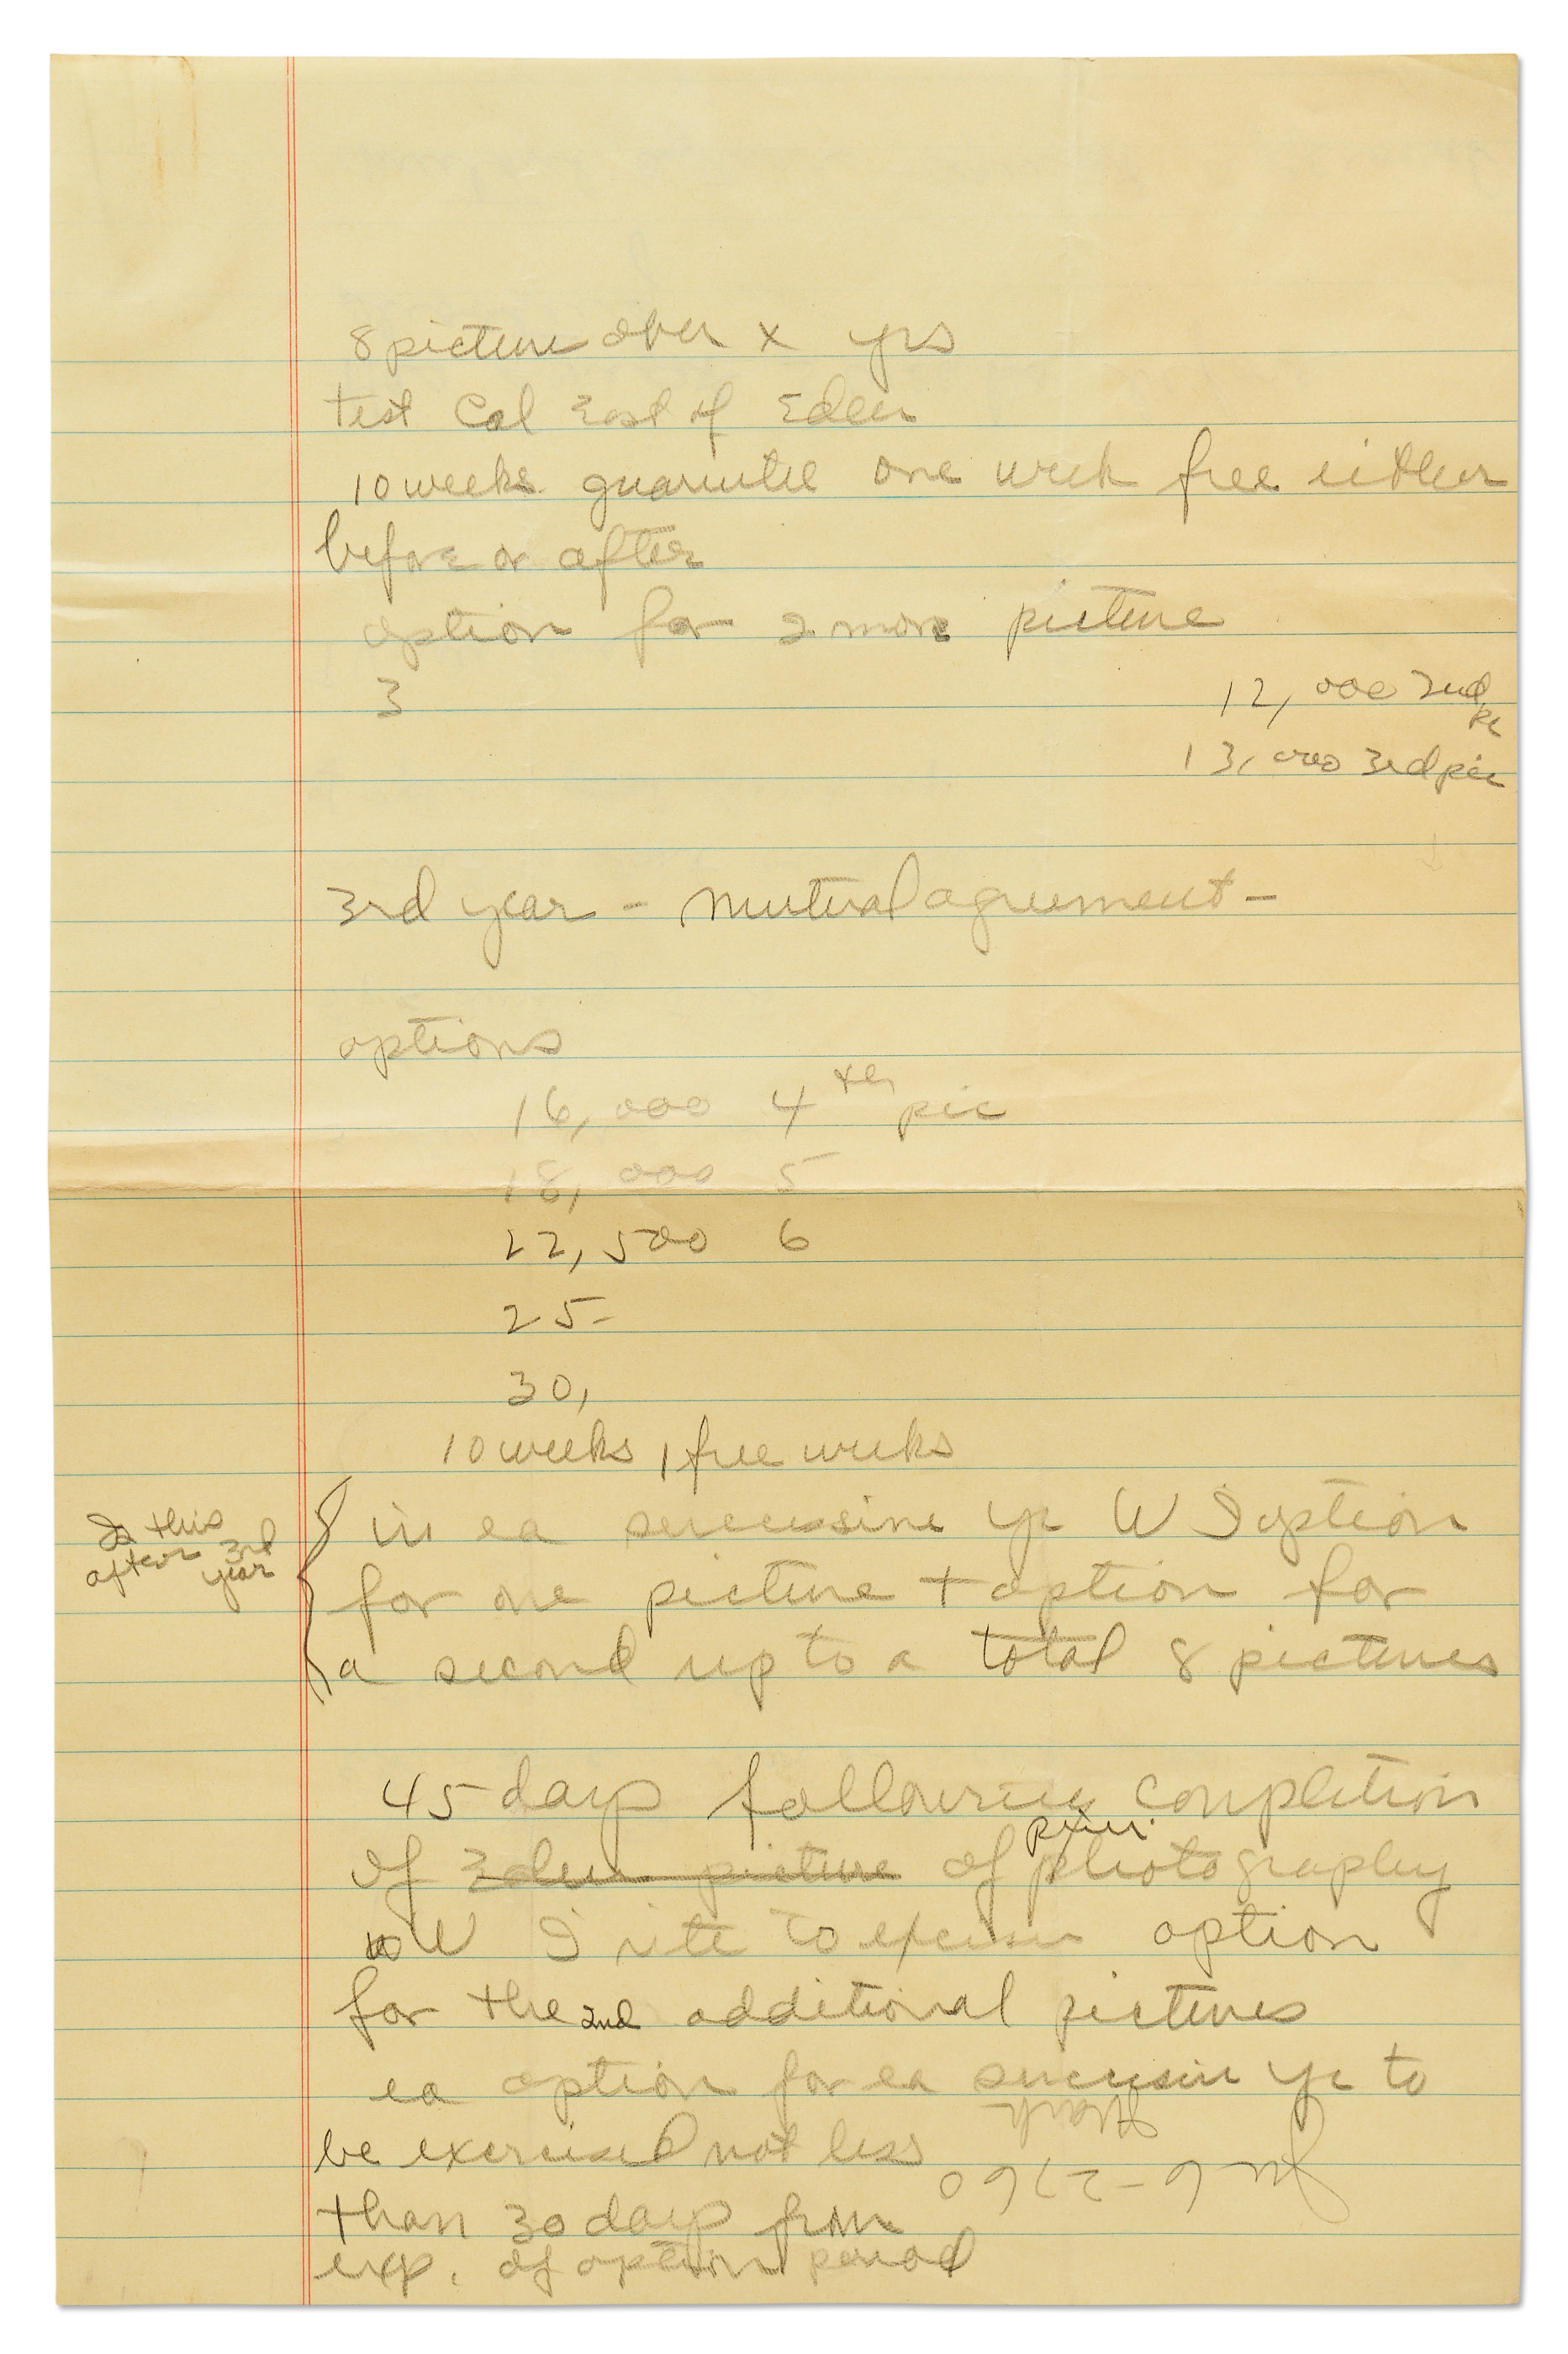 8 picture over x yrs
test Cal East of Eden
10 weeks guarntee one week free either
before or after
option for 2 more picture
3
12,000 2nd pic
13,000 3rd pic
3rd year - mutual agreement -
options
16,000 4th pic
18,000 5
22,500 6
25-
30,
10 weeks 1 free weeks
Is this
after 3rd
year
in ea successive yr W I option
for one picture + option for
a second up to a total 8 pictures
45 days following completion
of Eden picture of prin. photography
W I rite to exercise option
for the 2nd additional pictures
ea option for ea successive yr to
be exercised not less
than 30 days from
exp. of option period
Mark
Ju 6-2760